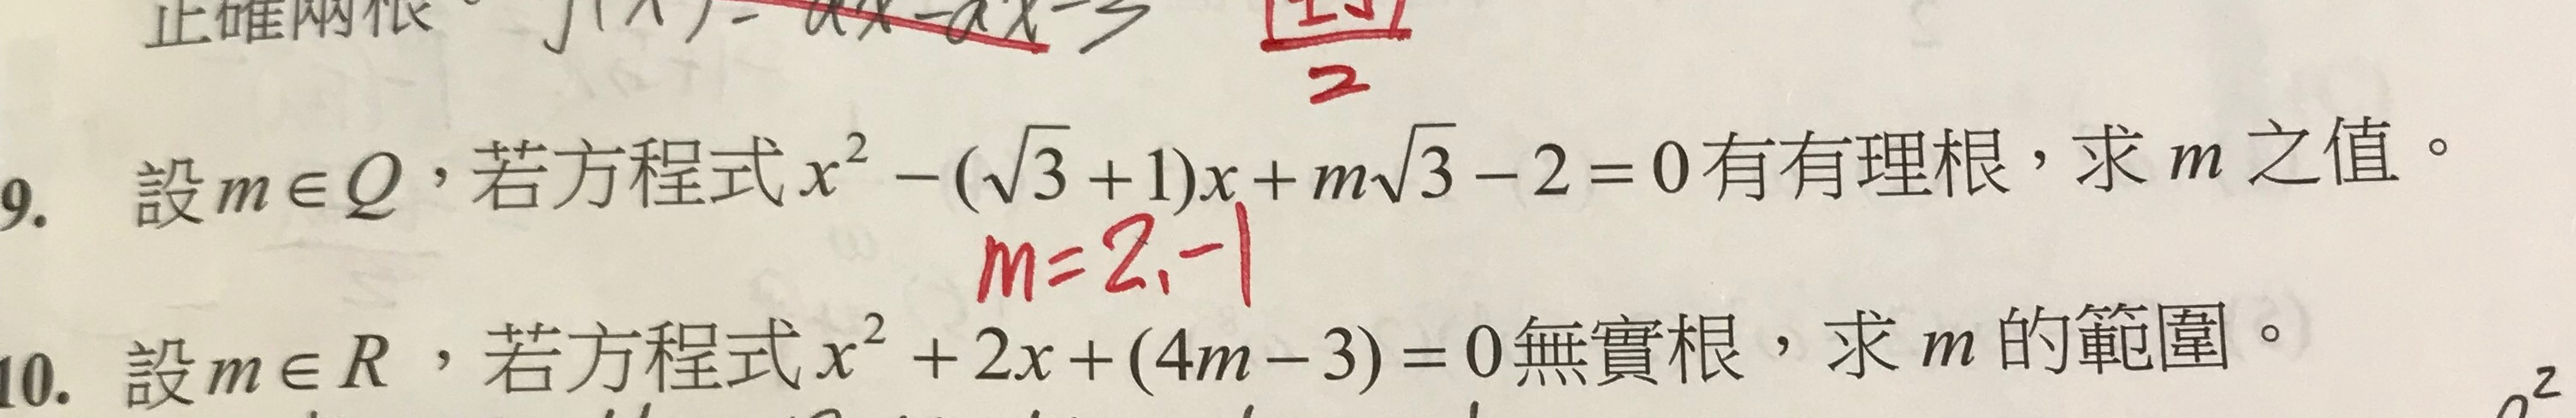 正確兩根。 f(x) = ax - ax - 3
2
9. 設 m ∈ Q，若方程式 x² - (√3 + 1)x + m√3 - 2 = 0 有有理根，求 m 之值。
m = 2, -1
10. 設 m ∈ R，若方程式 x² + 2x + (4m - 3) = 0 無實根，求 m 的範圍。